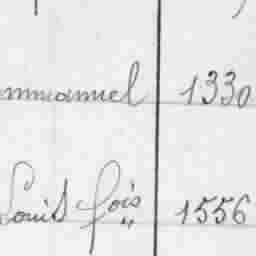 mmanuel 1330
Louis fois 1556